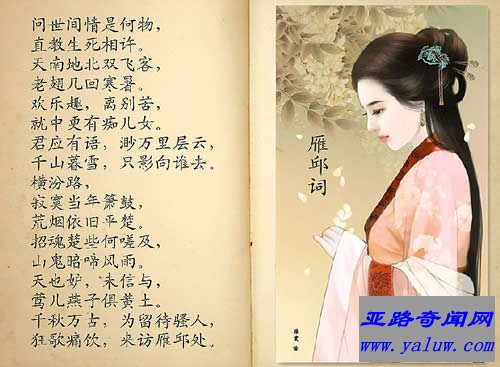 问世间情是何物，
直教生死相许。
天南地北双飞客，
老翅几回寒暑。
欢乐趣，离别苦，
就中更有痴儿女。
君应有语，渺万里层云，
千山暮雪，只影向谁去。
横汾路，
寂寞当年箫鼓，
荒烟依旧平楚。
招魂楚些何嗟及，
山鬼暗啼风雨。
天也妒，未信与，
莺儿燕子俱黄土。
千秋万古，为留待骚人，
狂歌痛饮，来访雁邱处。
雁邱词
亚路奇闻网
www.yaluw.com